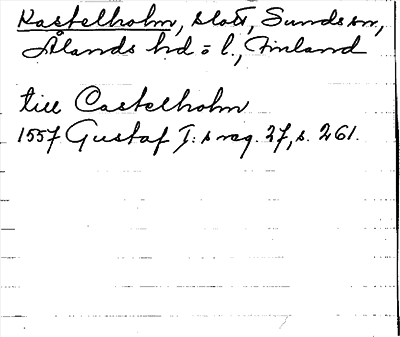 Kastelholm, slott, Sunds sn,
Ålands hd = l., Finland
till Castelholm
1557 Gustaf I:s reg. 27, s. 261.